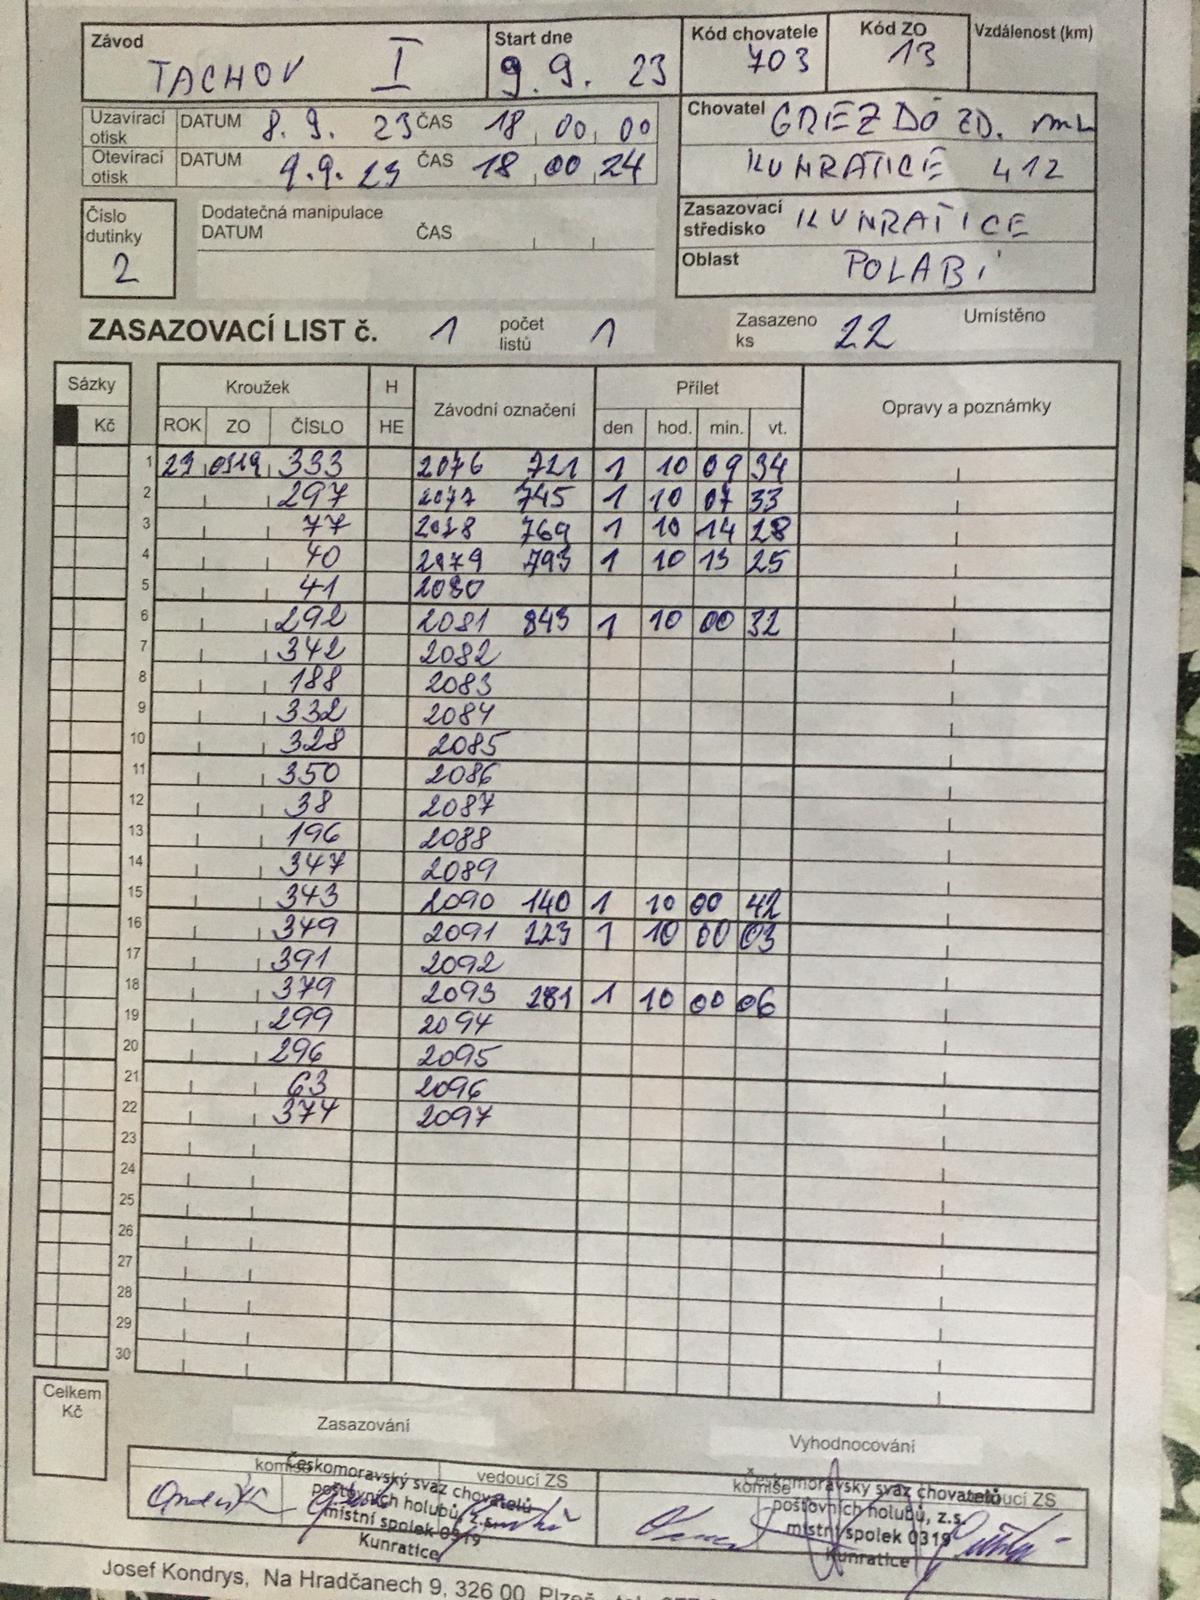 Závod TACHOV I
Start dne 9. 9. 23
Kód chovatele 703
Kód ZO 13
Vzdálenost (km)
Uzavírací otisk DATUM 8. 9. 23 ČAS 18 00 00
Otevírací otisk DATUM 9. 9. 23 ČAS 18 00 24
Chovatel GREZDO ZD. ml
KUNRATICE 412
Číslo dutinky 2
Dodatečná manipulace
DATUM ČAS
Zasazovací středisko KUNRATICE
Oblast POLABÍ
ZASAZOVACÍ LIST č. 1 počet listů 1 Zasazeno ks 22 Umístěno
Sázky Kroužek H Závodní označení Přílet Opravy a poznámky
Kč ROK ZO ČÍSLO HE den hod. min. vt.
1 23 0319 333 2076 721 1 10 09 34
2 297 2077 745 1 10 07 33
3 77 2078 769 1 10 14 28
4 40 2079 793 1 10 13 25
5 41 2080
6 292 2081 843 1 10 00 32
7 342 2082
8 188 2083
9 332 2084
10 328 2085
11 350 2086
12 38 2087
13 196 2088
14 347 2089
15 343 2090 140 1 10 00 42
16 349 2091 223 1 10 00 03
17 391 2092
18 379 2093 281 1 10 00 06
19 299 2094
20 296 2095
21 63 2096
22 374 2097
23
24
25
26
27
28
29
30
Celkem Kč
Zasazování
Vyhodnocování
komise vedoucí ZS
Českomoravský svaz chovatelů
poštovních holubů, z.s.
místní spolek 0319
Kunratice
komise vedoucí ZS
Českomoravský svaz chovatelů
poštovních holubů, z.s.
místní spolek 0319
Kunratice
Josef Kondrys, Na Hradčanech 9, 326 00 Plzeň